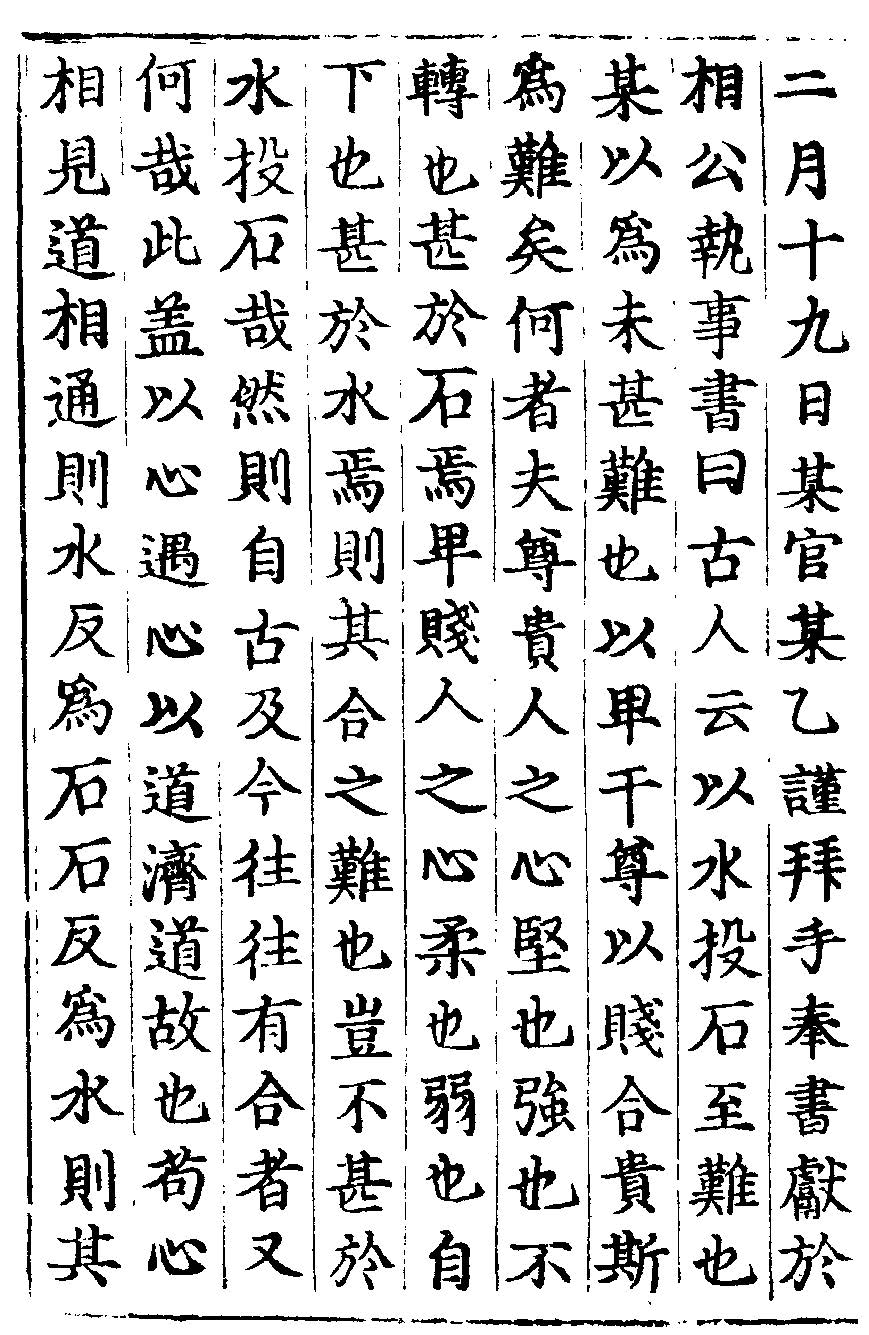 二月十九日某官某乙謹拜手奉書獻於
相公執事書曰古人云以水投石至難也
某以爲未甚難也以卑干尊以賤合貴斯
爲難矣何者夫尊貴人之心堅也強也不
轉也甚於石焉卑賤人之心柔也弱也自
下也甚於水焉則其合之難也豈不甚於
水投石哉然則自古及今往往有合者又
何哉此盖以心遇心以道濟道故也苟心
相見道相通則水反爲石石反爲水則其